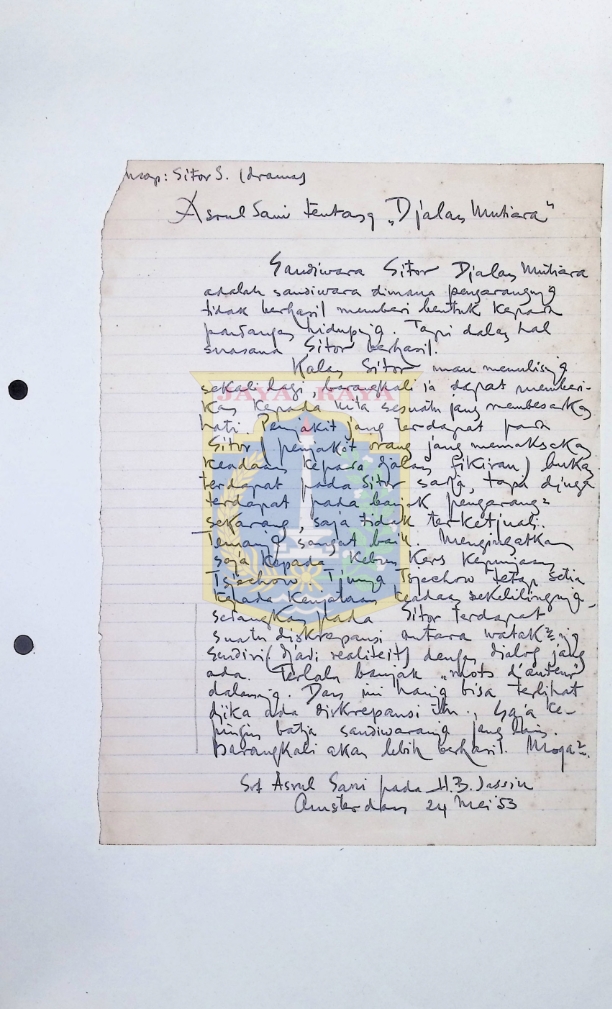 map: Sitor S. (drama)
Asrul Sani tentang „Djalan Mutiara"
Sandiwara Sitor Djalan Mutiara
adalah sandiwara dimana pengarangnja
tidak berhasil memberi bentuk kepada
pandangan hidupnja. Tapi dalam hal
suasana Sitor berhasil.
Kalau Sitor mau menulisnja
sekali lagi, barangkali ia dapat memberi-
kan kepada kita sesuatu jang membesarkan
hati. Penjakit jang terdapat pada
Sitor (penjakit orang jang memaksakan
keadaan kepada djalan fikiran) bukan
terdapat pada Sitor sadja, tapi djuga
terdapat pada banjak pengarang2
sekarang, saja tidak terketjuali.
sangat baik. Mengingatkan
saja kepada Kebun Kers kepunjaan
Tsjechow. Tjuma Tsjechow tetap setia
kepada kenjataan keadaan sekelilingnja,
sedangkan pada Sitor terdapat
suatu diskrepansi antara watak2nja
sendiri (djadi realiteit) dengan dialog jang
ada. Terlalu banjak „mots d'auteur"
dalamnja. Dan ini hanja bisa terlihat
djika ada diskrepansi itu. Saja ke-
pingin batja sandiwaranja jang lain.
Barangkali akan lebih berhasil. Moga2.
Srt Asrul Sani pada H.B. Jassin
Amsterdam 24 Mei '53
JAYA RAYA